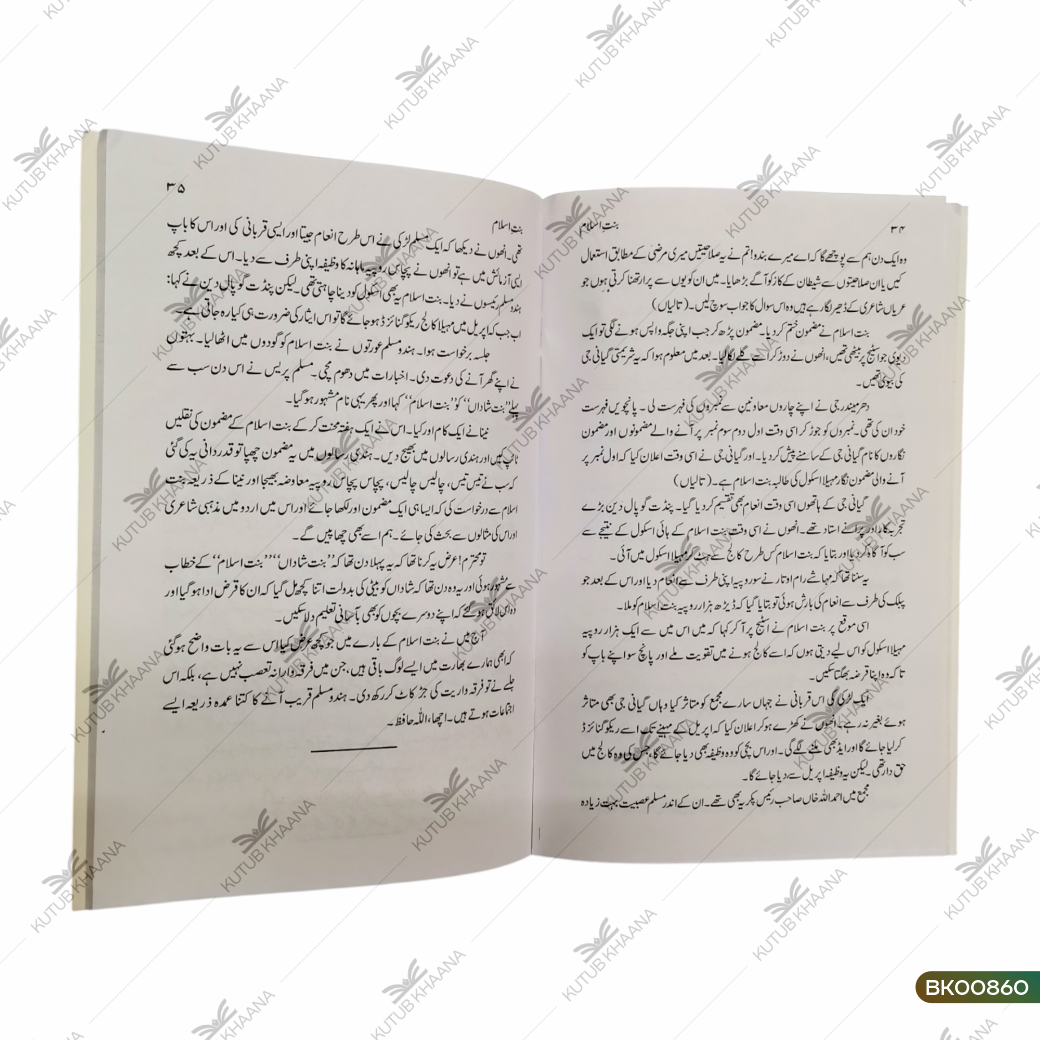 ۳۴
بنت اسلام
وہ ایک دن ہم سے پوچھے گا کہ اے میرے بندو! تم نے یہ صلاحیتیں میری مرضی کے مطابق استعمال
کیں یا ان صلاحیتوں سے شیطان کے کاز کو آگے بڑھایا۔ میں ان کویوں سے پرارتھنا کرتی ہوں جو
عریاں شاعری کے ڈھیر لگا رہے ہیں وہ اس سوال کا جواب سوچ لیں۔ (تالیاں)
بنت اسلام نے مضمون ختم کر دیا۔ مضمون پڑھ کر جب اپنی جگہ واپس ہونے لگی تو ایک
دیوی جو اسٹیج پر بیٹھی تھیں، انھوں نے دوڑ کر اسے گلے لگا لیا۔ بعد میں معلوم ہوا کہ یہ شریمتی گیانی جی
کی بیوی تھیں۔
دھرمیندر جی نے اپنے چاروں معاونین سے نمبروں کی فہرست لی۔ پانچویں فہرست
خود ان کی تھی۔ نمبروں کو جوڑ کر اسی وقت اول دوم سوم نمبر پر آنے والے مضمونوں اور مضمون
نگاروں کا نام گیانی جی کے سامنے پیش کر دیا۔ اور گیانی جی نے اسی وقت اعلان کیا کہ اول نمبر پر
آنے والی مضمون نگار مہیلا اسکول کی طالبہ بنت اسلام ہے۔ (تالیاں)
گیانی جی کے ہاتھوں اسی وقت انعام بھی تقسیم کر دیا گیا۔ پنڈت گوپال دین بڑے
تجربہ کار اور پرانے استاد تھے۔ انھوں نے اسی وقت بنت اسلام کے ہائی اسکول کے نتیجے سے
سب کو آگاہ کر دیا اور بتایا کہ بنت اسلام کس طرح کالج سے ہٹ کر مہیلا اسکول میں آئی۔
یہ سننا تھا کہ مہاشے رام اوتار نے سو روپیہ اپنی طرف سے انعام دیا اور اس کے بعد جو
پبلک کی طرف سے انعام کی بارش ہوئی تو بتایا گیا کہ ڈیڑھ ہزار روپیہ بنت اسلام کو ملا۔
اسی موقع پر بنت اسلام نے اسٹیج پر آ کر کہا کہ میں اس میں سے ایک ہزار روپیہ
مہیلا اسکول کو اس لیے دیتی ہوں کہ اسے کالج ہونے میں تقویت ملے اور پانچ سو اپنے باپ کو
تاکہ وہ اپنا قرضہ بھگتا سکیں۔
ایک لڑکی کی اس قربانی نے جہاں سارے مجمع کو متاثر کیا وہاں گیانی جی بھی متاثر
ہوئے بغیر نہ رہے۔ انھوں نے کھڑے ہو کر اعلان کیا کہ اپریل کے مہینے تک اسے ریکوگنائزڈ
کر لیا جائے گا اور ایڈ بھی ملنے لگے گی۔ اور اس بچی کو وہ وظیفہ بھی دیا جائے گا، جس کی وہ کالج میں
حق دار تھی۔ لیکن یہ وظیفہ اپریل سے دیا جائے گا۔
مجمع میں احمد اللہ خاں صاحب رئیس پکریہ بھی تھے۔ ان کے اندر مسلم عصبیت بہت زیادہ
بنت اسلام
۳۵
تھی۔ انھوں نے دیکھا کہ ایک مسلم لڑکی نے اس طرح انعام جیتا اور ایسی قربانی کی اور اس کا باپ
ایسی آزمائش میں ہے تو انھوں نے پچاس روپیہ ماہانہ کا وظیفہ اپنی طرف سے دیا۔ اس کے بعد کچھ
ہندو مسلم رئیسوں نے دیا۔ بنت اسلام یہ بھی اسکول کو دینا چاہتی تھی۔ لیکن پنڈت گوپال دین نے کہا:
اب جب کہ اپریل میں مہیلا کالج ریکوگنائزڈ ہو جائے گا تو اس ایثار کی ضرورت ہی کیا رہ جاتی ہے۔
جلسہ برخواست ہوا۔ ہندو مسلم عورتوں نے بنت اسلام کو گودوں میں اٹھا لیا۔ بہتوں
نے اپنے گھر آنے کی دعوت دی۔ اخبارات میں دھوم مچی۔ مسلم پریس نے اس دن سب سے
پہلے ”بنت شاداں“ کو ”بنت اسلام“ کہا اور پھر یہی نام مشہور ہو گیا۔
نینا نے ایک کام اور کیا۔ اس نے ایک ہفتہ محنت کر کے بنت اسلام کے مضمون کی نقلیں
ٹائپ کیں اور ہندی رسالوں میں بھیج دیں۔ ہندی رسالوں میں یہ مضمون چھپا تو قدردانی یہ کی گئی
کہ سب نے تیس تیس، چالیس چالیس، پچاس پچاس روپیہ معاوضہ بھیجا اور نینا کے ذریعہ بنت
اسلام سے درخواست کی کہ ایسا ہی ایک مضمون اور لکھا جائے اور اس میں اردو میں مذہبی شاعری
اور اس کی مثالوں سے بحث کی جائے۔ ہم اسے بھی چھاپیں گے۔
تو محترم! عرض یہ کرنا تھا کہ یہ پہلا دن تھا کہ ”بنت شاداں“ ”بنت اسلام“ کے خطاب
سے مشہور ہوئی اور یہ وہ دن تھا کہ شاداں کو بیٹی کی بدولت اتنا کچھ مل گیا کہ ان کا قرض ادا ہو گیا اور
وہ اس لائق ہو گئے کہ اپنے دوسرے بچوں کو بھی بآسانی تعلیم دلا سکیں۔
آج میں نے بنت اسلام کے بارے میں جو کچھ عرض کیا اس سے یہ بات واضح ہو گئی
کہ ابھی ہمارے بھارت میں ایسے لوگ باقی ہیں، جن میں فرقہ وارانہ تعصب نہیں ہے، بلکہ اس
جلسے نے تو فرقہ واریت کی جڑ کاٹ کر رکھ دی۔ ہندو مسلم قریب آنے کا کتنا عمدہ ذریعہ ایسے
اجتماعات ہوتے ہیں۔ اچھا، اللہ حافظ۔
KUTUB KHAANA
BK00860